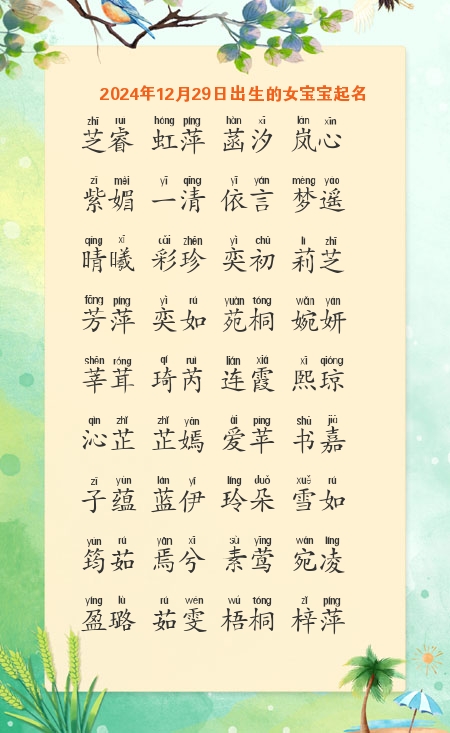 2024年12月29日出生的女宝宝起名
zhī ruì hóng píng hàn xī lán xīn
芝睿 虹萍 菡汐 岚心
zǐ mèi yī qīng yī yán mèng yáo
紫媚 一清 依言 梦遥
qíng xī cǎi zhēn yì chū lì zhī
晴曦 彩珍 奕初 莉芝
fāng píng yì rú yuàn tóng wǎn yán
芳萍 奕如 苑桐 婉妍
shēn róng qí ruì lián xiá xī qióng
莘茸 琦芮 连霞 熙琼
qìn zhǐ zhǐ yān ài píng shū jiā
沁芷 芷嫣 爱苹 书嘉
zǐ yùn lán yī líng duǒ xuě rú
子蕴 蓝伊 玲朵 雪如
yún rú yān xī sù yīng wǎn líng
筠茹 焉兮 素莺 宛凌
yíng lù rú wén wú tóng zǐ píng
盈璐 茹雯 梧桐 梓萍